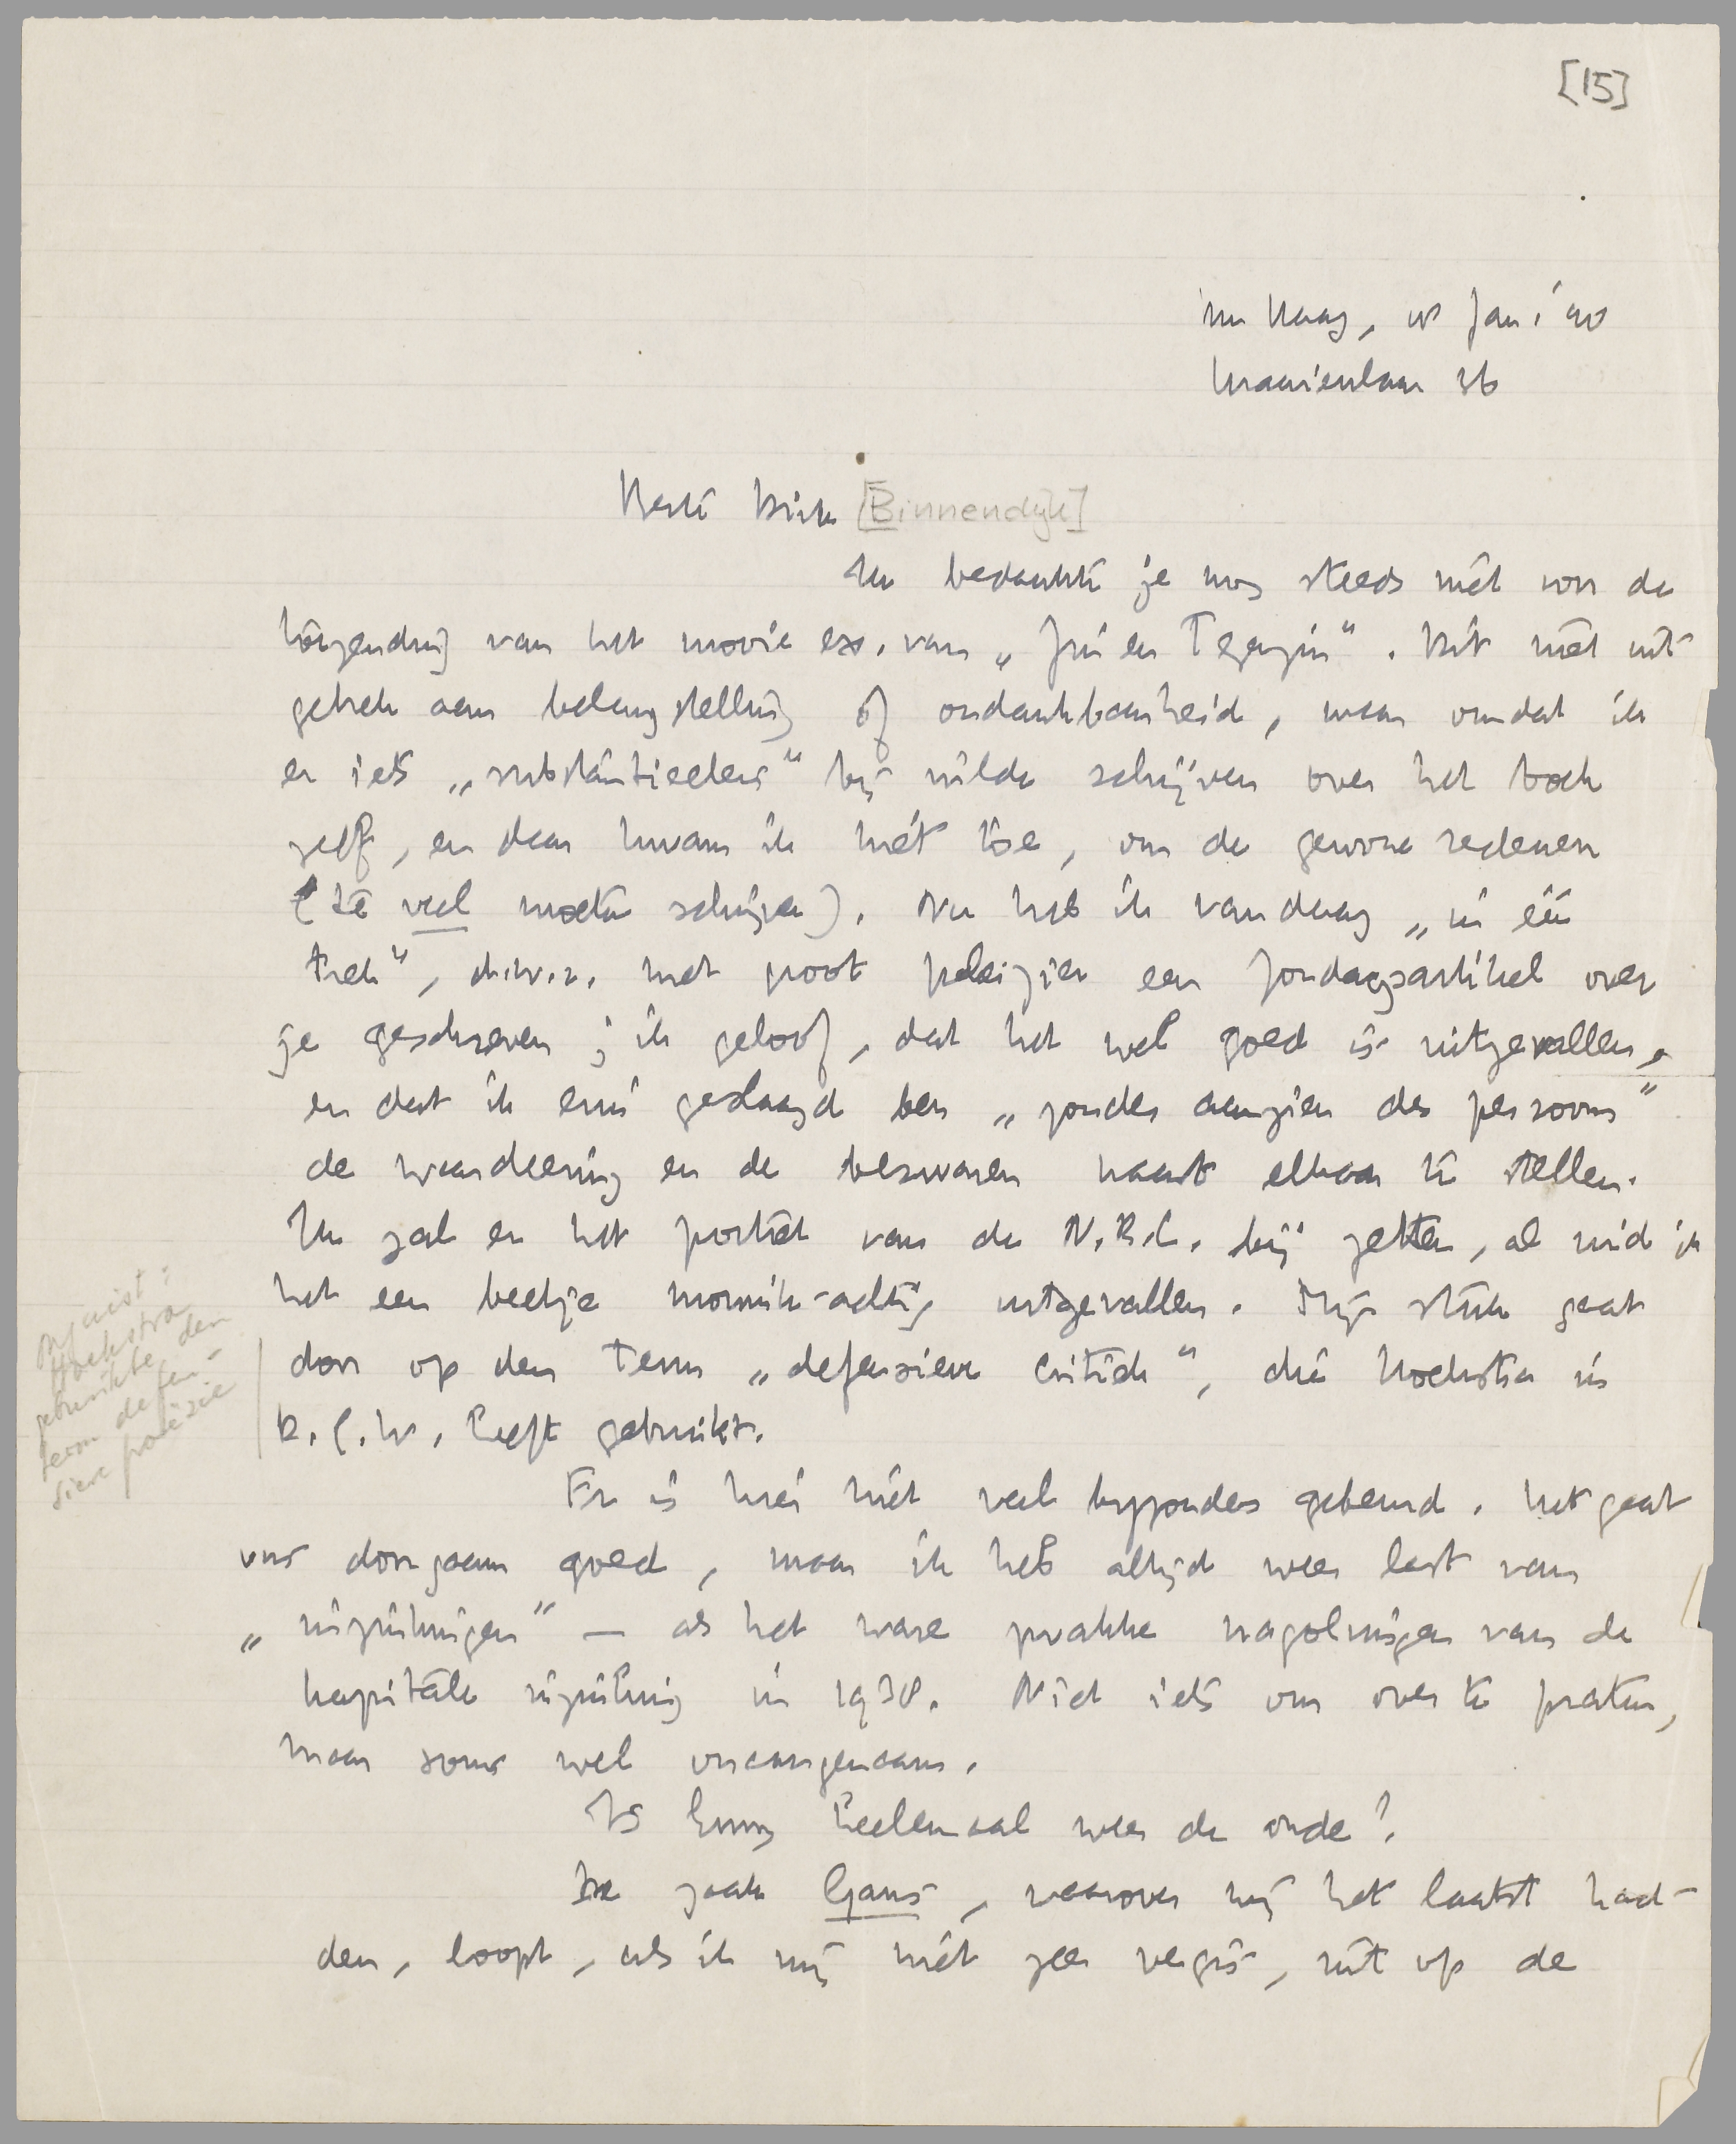 [15]
Den Haag, 18 Jan. '40
Kraaienlaan 36
Beste Dick [Binnendijk]
Ik bedankte je nog steeds niet voor de
toezending van het mooie ex. van „Zin en Tegenzin”. Dit niet uit
gebrek aan belangstelling of ondankbaarheid, maar omdat ik
er iets „substantieelers” bij wilde schrijven over het boek
zelf, en daar kwam ik niet toe, om de gewone redenen
(te veel moeten schrijven). Nu heb ik vandaag „in één
trek”, d.w.z. met groot pleizier een Zondagsartikel over
je geschreven; ik geloof, dat het wel goed is uitgevallen,
en dat ik erin geslaagd ben „zonder aanzien des persoons”
de waardeering en de bezwaren naast elkaar te stellen.
Ik zal er het portret van de N.R.C. bij zetten, al vind ik
het een beetje monnik-achtig uitgevallen. Mijn stuk gaat
door op den term „defensieve critiek”, die Hoekstra in
D.G.W. heeft gebruikt.
Onjuist:
Hoekstra
gebruikte den
term defen-
sieve poëzie
Er is hier niet veel byzonders gebeurd. Het gaat
ons doorgaans goed, maar ik heb altijd weer last van
„inzinkingen” — als het ware zwakke nagolvingen van de
kapitale inzinking in 1938. Niet iets om over te praten,
maar soms wel onaangenaam.
Is Enny heelemaal weer de oude?
De zaak Gans, waarover wij het laatst had-
den, loopt, als ik mij niet zeer vergis, uit op de